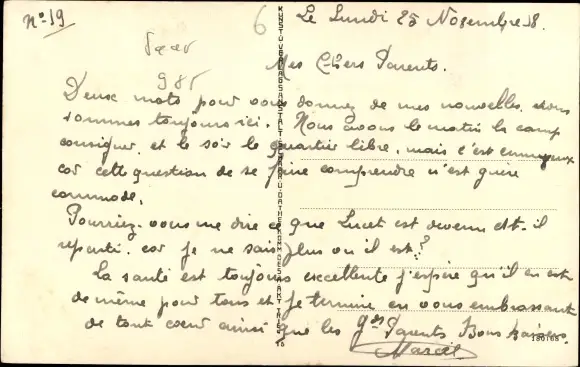 n° 19
6
Le Lundi 25 Novembre 18.
985
Mes Chers Parents.
Deux mots pour vous donnez de mes nouvelles. nous
sommes toujours ici. Nous avons le matin le camp
consigner, et le soir le quartier libre, mais c'est ennuyeux
car cette question de se faire comprendre n'est guère
commode.
Pourriez-vous me dire ce que Lucet est devenu est-il
reparti. car je ne sais plus ou il est?
La santé est toujours excellente j'espère qu'il en est
de même pour tous et je termine en vous embrassant
de tout cœur ainsi que les Gds Parents Bons baisers.
Marcel